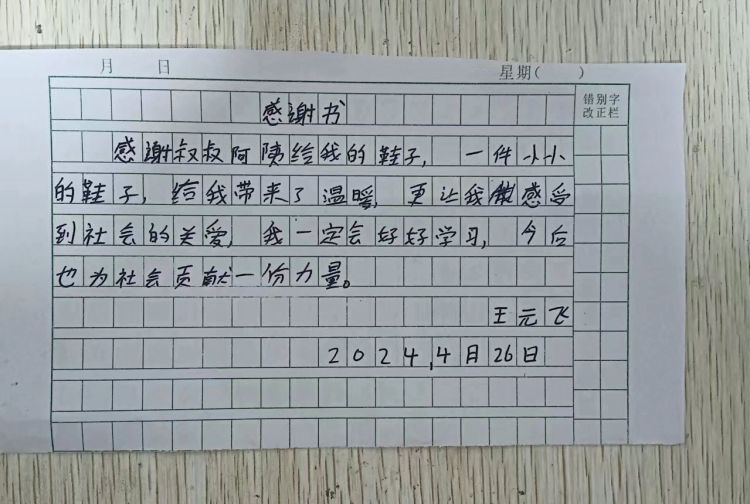 月 日 星期( )
错别字
改正栏
感谢书
感谢叔叔阿姨给我的鞋子，一件小小
的鞋子，给我带来了温暖，更让我感受
到社会的关爱，我一定会好好学习，今后
也为社会贡献一份力量。
王元飞
2024,4月26日